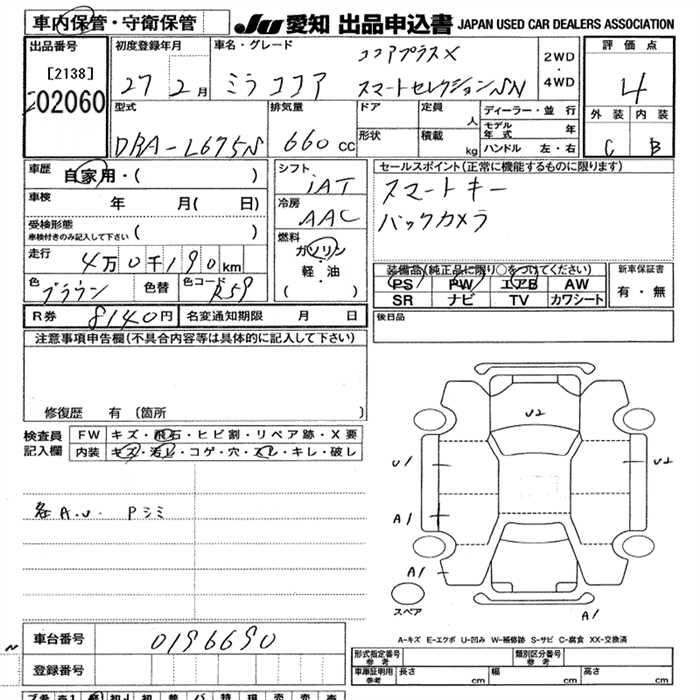 車内保管・守衛保管
JU 愛知 出品申込書 JAPAN USED CAR DEALERS ASSOCIATION
出品番号
[2138]
02060
初度登録年月
27 2月
車名・グレード
ミラココア
ココアプラスX
スマートセレクションSN
2WD
・
4WD
評価点
4
外装 内装
C B
型式
DBA-L675S
排気量
660 cc
ドア
形状
定員
人
積載
kg
ディーラー・並行
モデル年式 年
ハンドル 左・右
車歴
自家用・( )
車検 年 月( 日)
受検形態
車検付きのみ記入して下さい ( )
走行 4万0千190km
色 ブラウン 色替 色コード R59
R券 8140円 名変通知期限 月 日
シフト
IAT
冷房
AAC
燃料
ガソリン
・
軽・油
( )
セールスポイント(正常に機能するものに限ります)
スマートキー
バックカメラ
装備品(純正品に限り○をつけてください)
PS PW エアB AW
SR ナビ TV カワシート
新車保証書
有・無
後日品
注意事項申告欄(不具合内容等は具体的に記入して下さい)
修復歴 有 〔箇所 〕
検査員
記入欄
FW キズ・飛石・ヒビ割・リペア跡・X要
内装 キズ・汚レ・コゲ・穴・スレ・キレ・破し
各A.U. Pシミ
U2
U1
U2
A1
A1
A1
スペア
A-キズ E-エクボ U-凹み W-補修跡 S-サビ C-腐食 XX-交換済
車台番号 0196690
登録番号
形式指定番号
参考
類別区分番号
参考
車庫証明用
参考
長さ cm
幅 cm
高さ cm